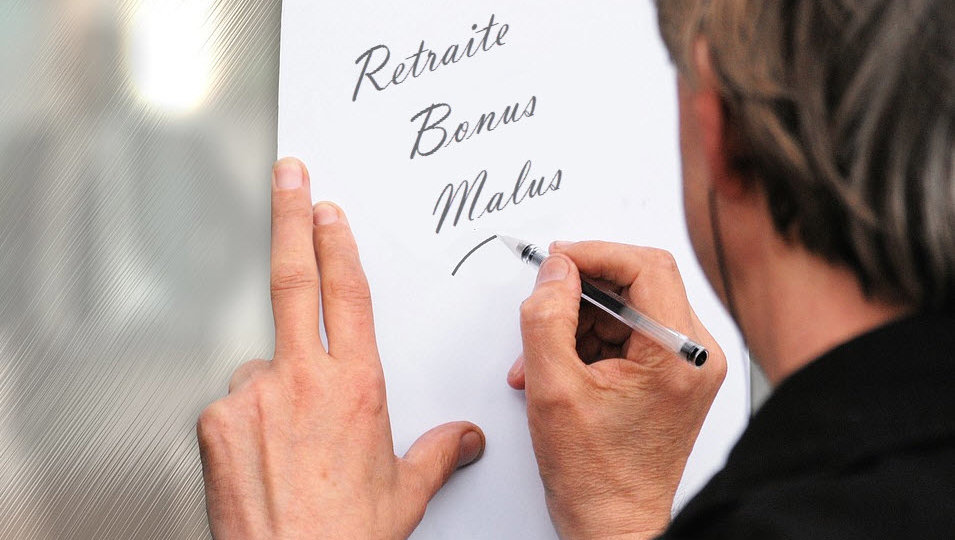 Retraite
Bonus
Malus